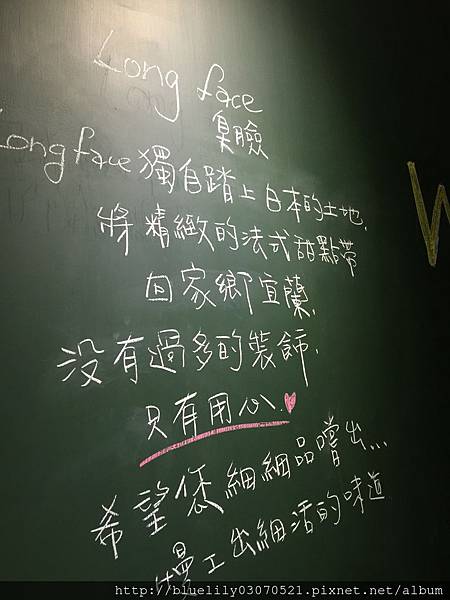 Long face
臭臉
Long face 獨自踏上日本的土地,
將精緻的法式甜點帶
回家鄉宜蘭,
没有過多的裝飾,
只有用心.
希望您細細品嚐出...
慢工出細活的味道
http://bluelily03070521.pixnet.net/album